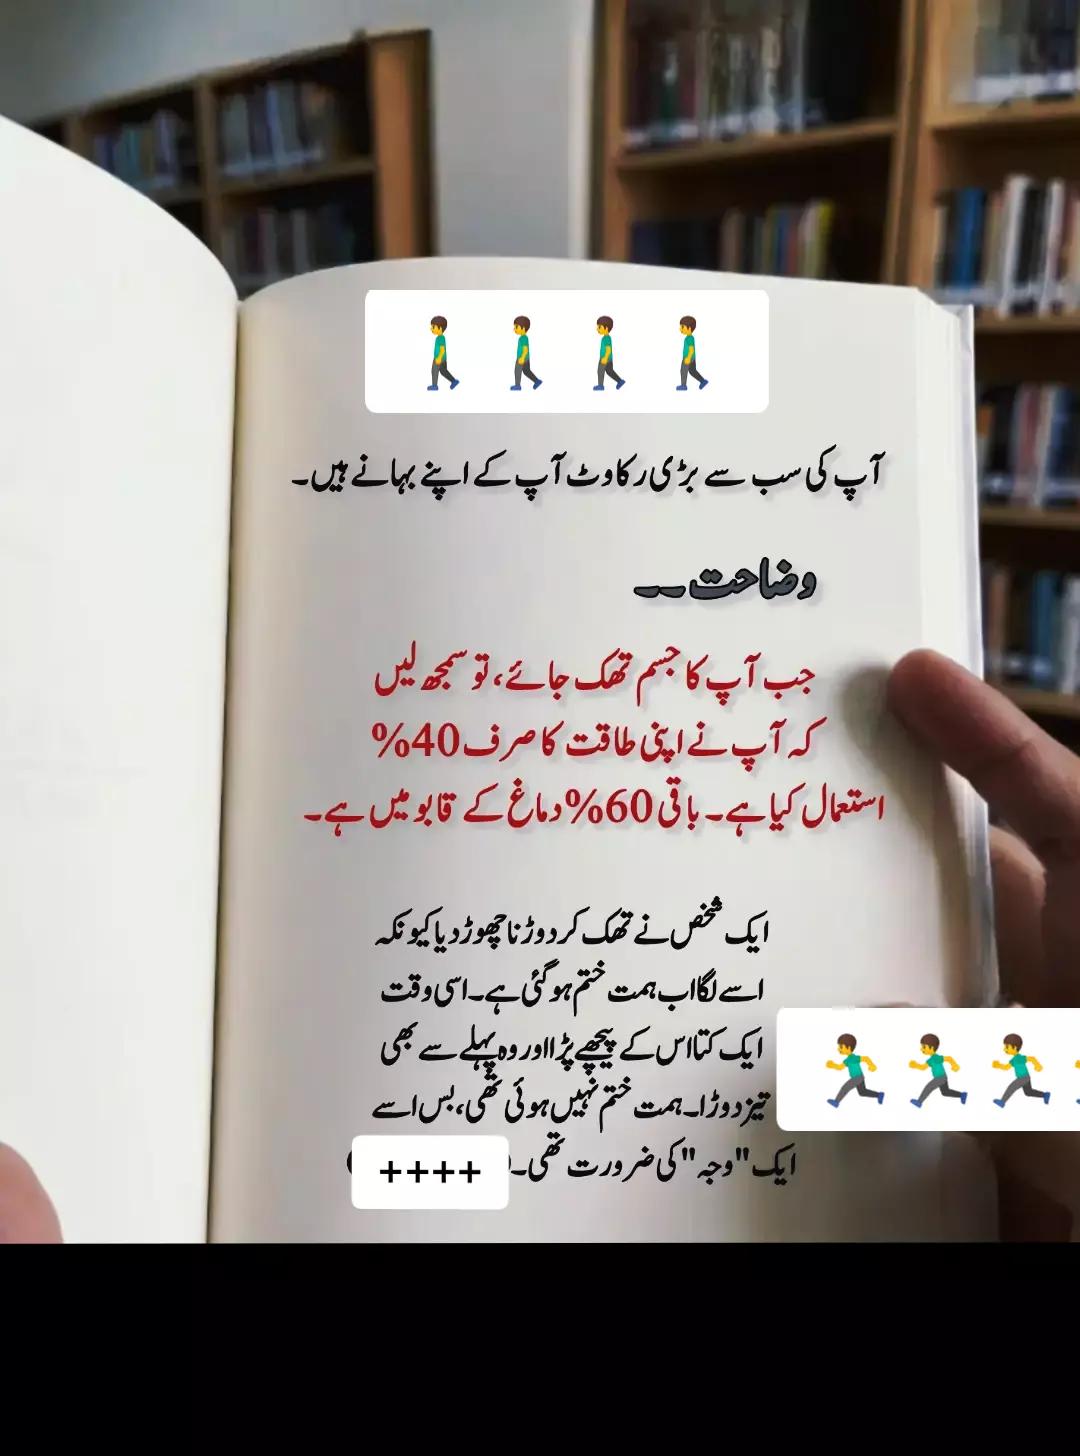 آپ کی سب سے بڑی رکاوٹ آپ کے اپنے بہانے ہیں۔
وضاحت۔۔
جب آپ کا جسم تھک جائے، تو سمجھ لیں
کہ آپ نے اپنی طاقت کا صرف 40%
استعمال کیا ہے۔ باقی 60% دماغ کے قابو میں ہے۔
ایک شخص نے تھک کر دوڑنا چھوڑ دیا کیونکہ
اسے لگا اب ہمت ختم ہو گئی ہے۔ اسی وقت
ایک کتا اس کے پیچھے پڑا اور وہ پہلے سے بھی
تیز دوڑا۔ ہمت ختم نہیں ہوئی تھی، بس اسے
ایک "وجہ" کی ضرورت تھی۔
++++